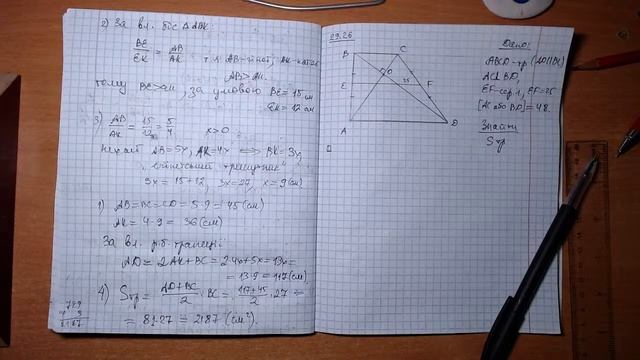 2) За вл. біс △ ABK:
BE/EK = AB/AK т.я AB-гіпот, AK-катет
AB > AK.
тому BE > EK, за умовою BE = 15 см
EK = 12 см
3) AB/AK = 15/12 = 5/4 x>0
Нехай AB=5x, AK=4x ⟺ BK=3x,
3x = 15+12, 3x=27, x=9 (см)
1) AB=BC=CD = 5·9 = 45 (см)
AK = 4·9 = 36 (см)
За вл. р.б. трапеції
AD = 2AK+BC = 2·4x+5x=13x=
= 13·9 = 117 (см).
4) Sтр = (AD+BC)/2 · BK = (117+45)/2 · 27 =
= 81·27 = 2187 (см²).
729
2187
29.26
B C
O
E 25 F
A D
Дано:
ABCD-тр (AD||BC)
AC⊥BD,
EF-сер.л, EF=25
[AC або BD] = 48.
Знайти
Sтр